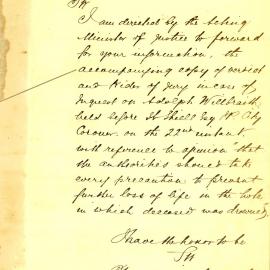 Sir
I am directed by the Acting
Minister of Justice to forward
for your information, the
accompanying copy of verdict
and Rider of Jury in case of
Inquest on Adolph
held before H Shiell Esq JP City
Coroner on the 22nd instant
with reference to opinion "that
the authorities should take
every precaution to prevent
further loss of life in the hole
in which deceased was drowned".
I have the honor to be
Sir